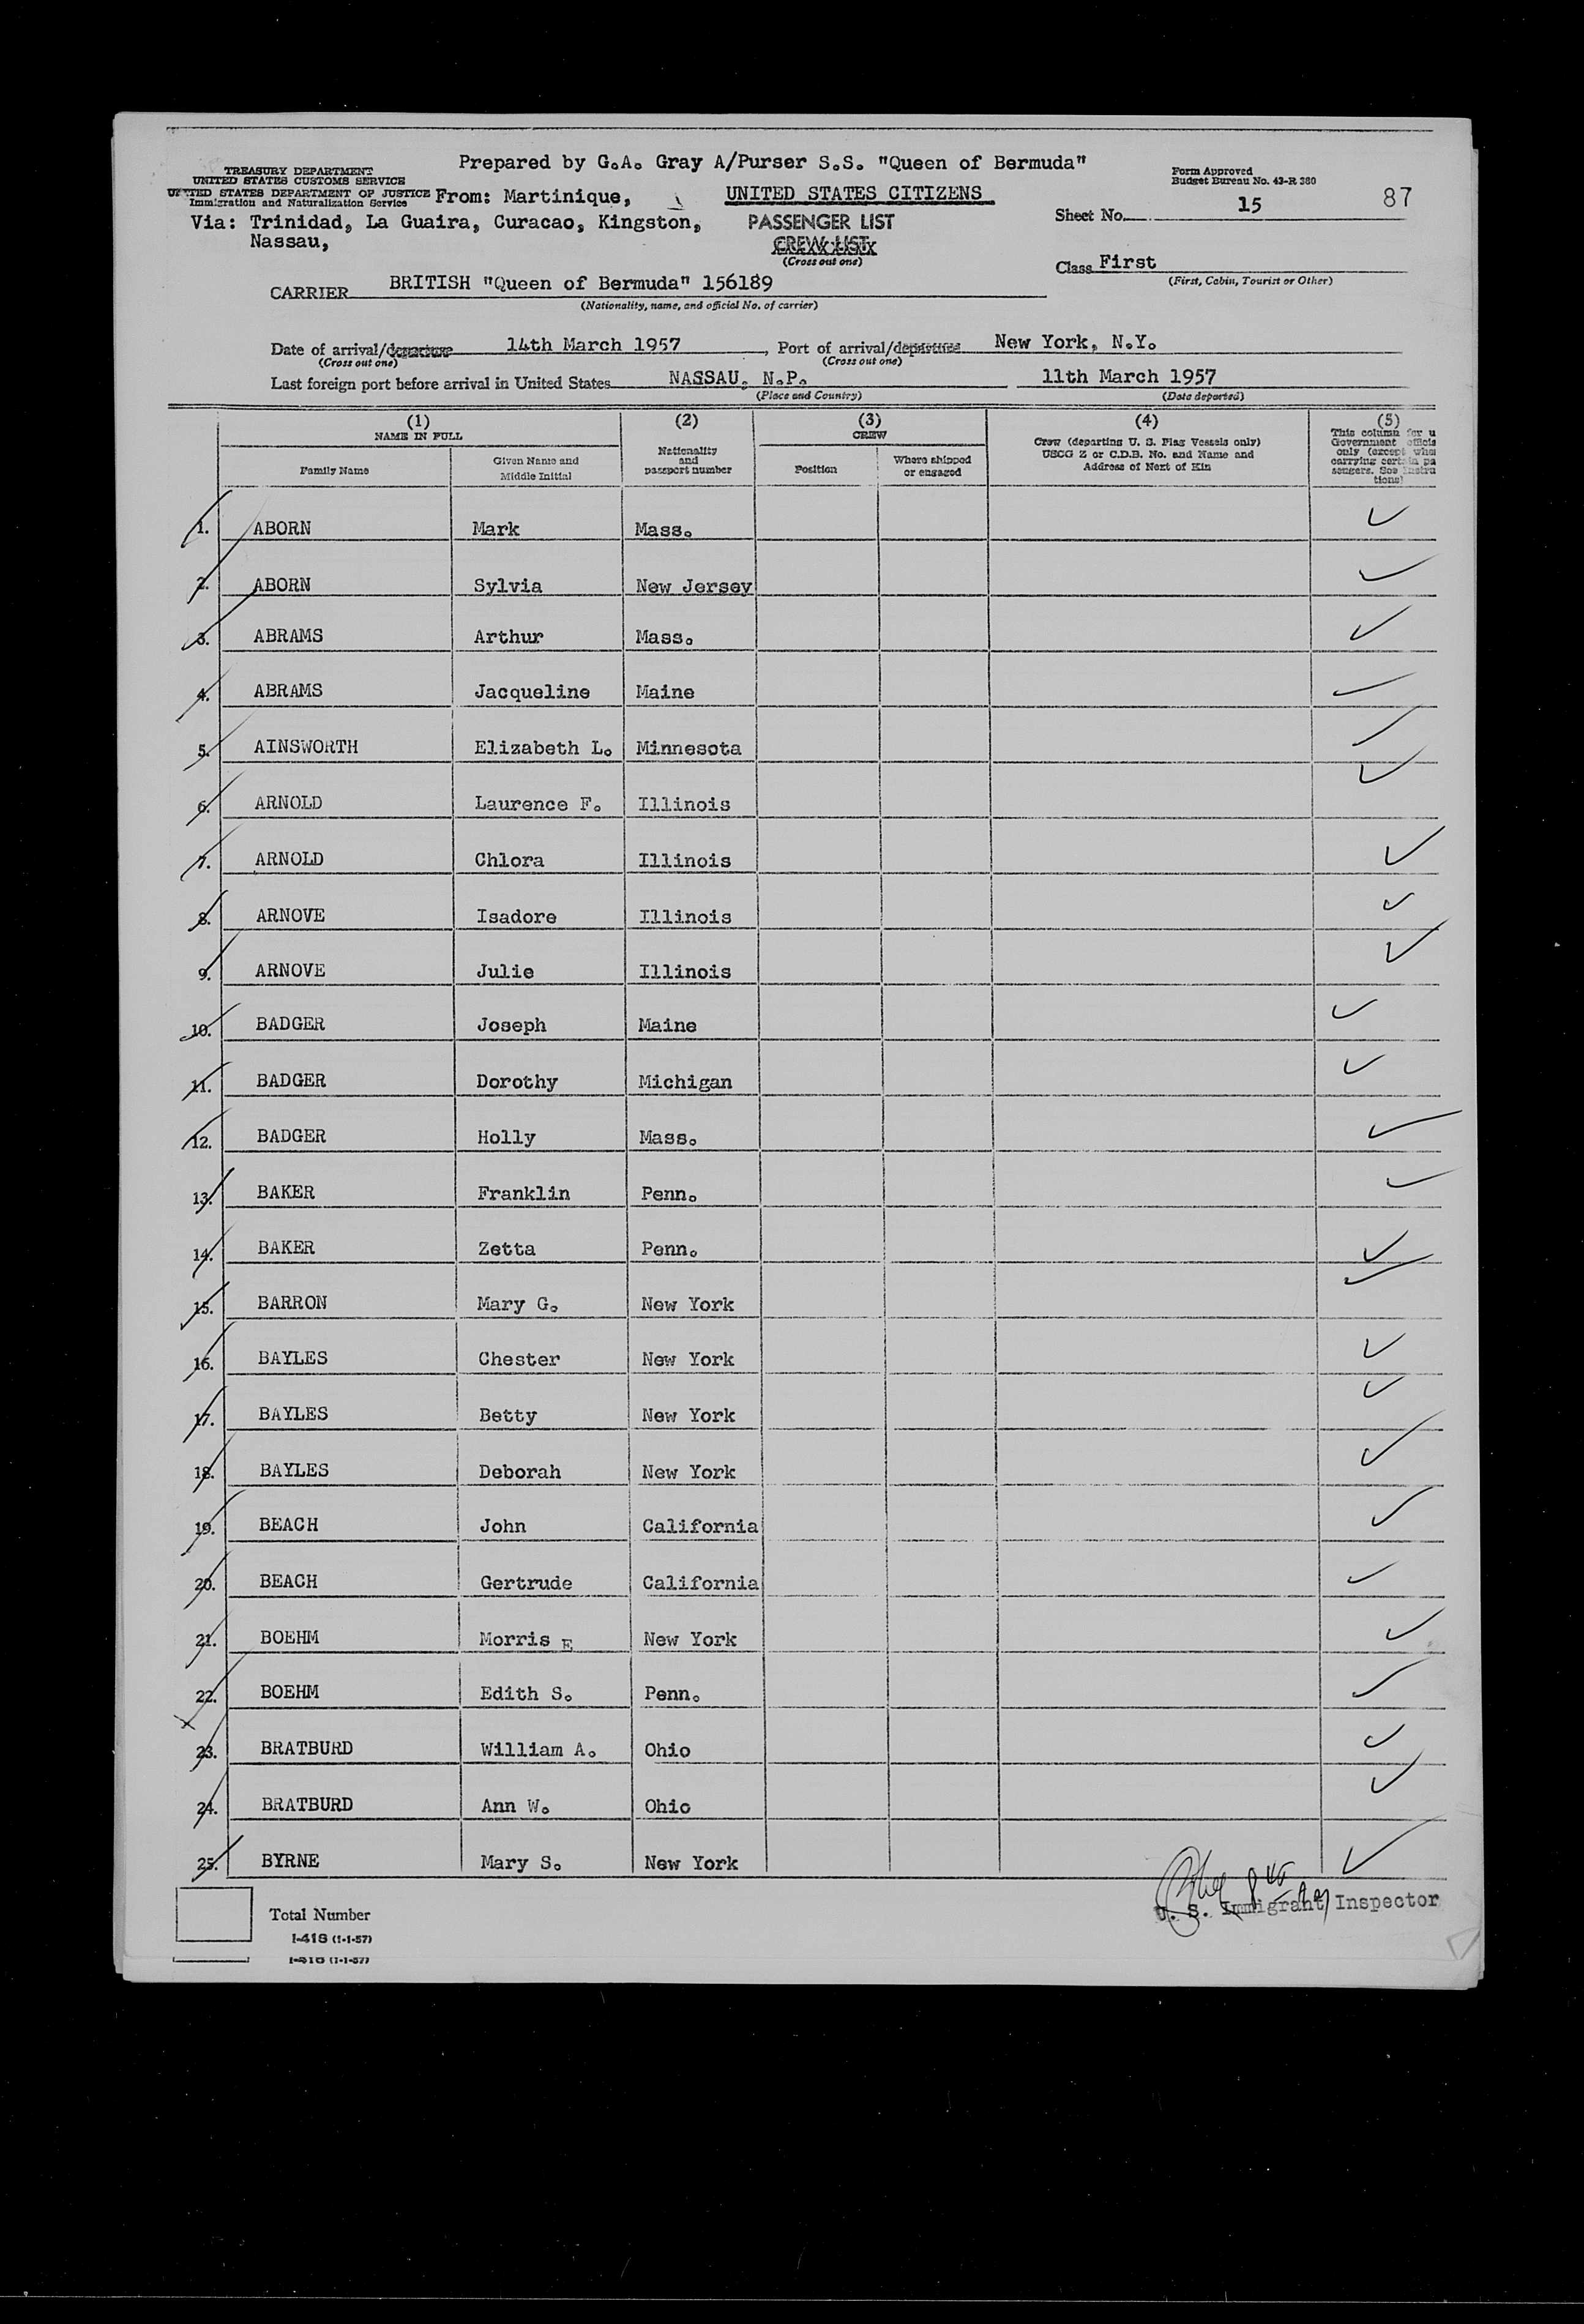 Prepared by G.A. Gray A/Purser S.S. "Queen of Bermuda"
TREASURY DEPARTMENT
UNITED STATES CUSTOMS SERVICE
UNITED STATES DEPARTMENT OF JUSTICE
Immigration and Naturalization Service
Form Approved
Budget Bureau No. 43-R 380
87
From: Martinique,
UNITED STATES CITIZENS
Sheet No. 15
Via: Trinidad, La Guaira, Curacao, Kingston,
Nassau,
PASSENGER LIST
CREW LIST
(Cross out one)
Class First
(First, Cabin, Tourist or Other)
CARRIER BRITISH "Queen of Bermuda" 156189
(Nationality, name, and official No. of carrier)
Date of arrival/departure 14th March 1957, Port of arrival/departure New York, N.Y.
(Cross out one) (Cross out one)
Last foreign port before arrival in United States NASSAU, N.P. 11th March 1957
(Place and Country) (Date departed)
(1) (2) (3) (4) (5)
NAME IN FULL
Family Name
Given Name and
Middle Initial
Nationality
and
passport number
CREW
Position
Where shipped
or engaged
Crew (departing U. S. Flag Vessels only)
USCG Z or C.D.B. No. and Name and
Address of Next of Kin
This column for u
Government officia
only (except when
carrying certain pa
sengers. See Instru
tions)
1. ABORN Mark Mass.
2. ABORN Sylvia New Jersey
3. ABRAMS Arthur Mass.
4. ABRAMS Jacqueline Maine
5. AINSWORTH Elizabeth L. Minnesota
6. ARNOLD Laurence F. Illinois
7. ARNOLD Chlora Illinois
8. ARNOVE Isadore Illinois
9. ARNOVE Julie Illinois
10. BADGER Joseph Maine
11. BADGER Dorothy Michigan
12. BADGER Holly Mass.
13. BAKER Franklin Penn.
14. BAKER Zetta Penn.
15. BARRON Mary G. New York
16. BAYLES Chester New York
17. BAYLES Betty New York
18. BAYLES Deborah New York
19. BEACH John California
20. BEACH Gertrude California
21. BOEHM Morris E New York
22. BOEHM Edith S. Penn.
23. BRATBURD William A. Ohio
24. BRATBURD Ann W. Ohio
25. BYRNE Mary S. New York
U. S. Immigrant Inspector
Total Number
I-418 (1-1-57)
I-418 (1-1-57)